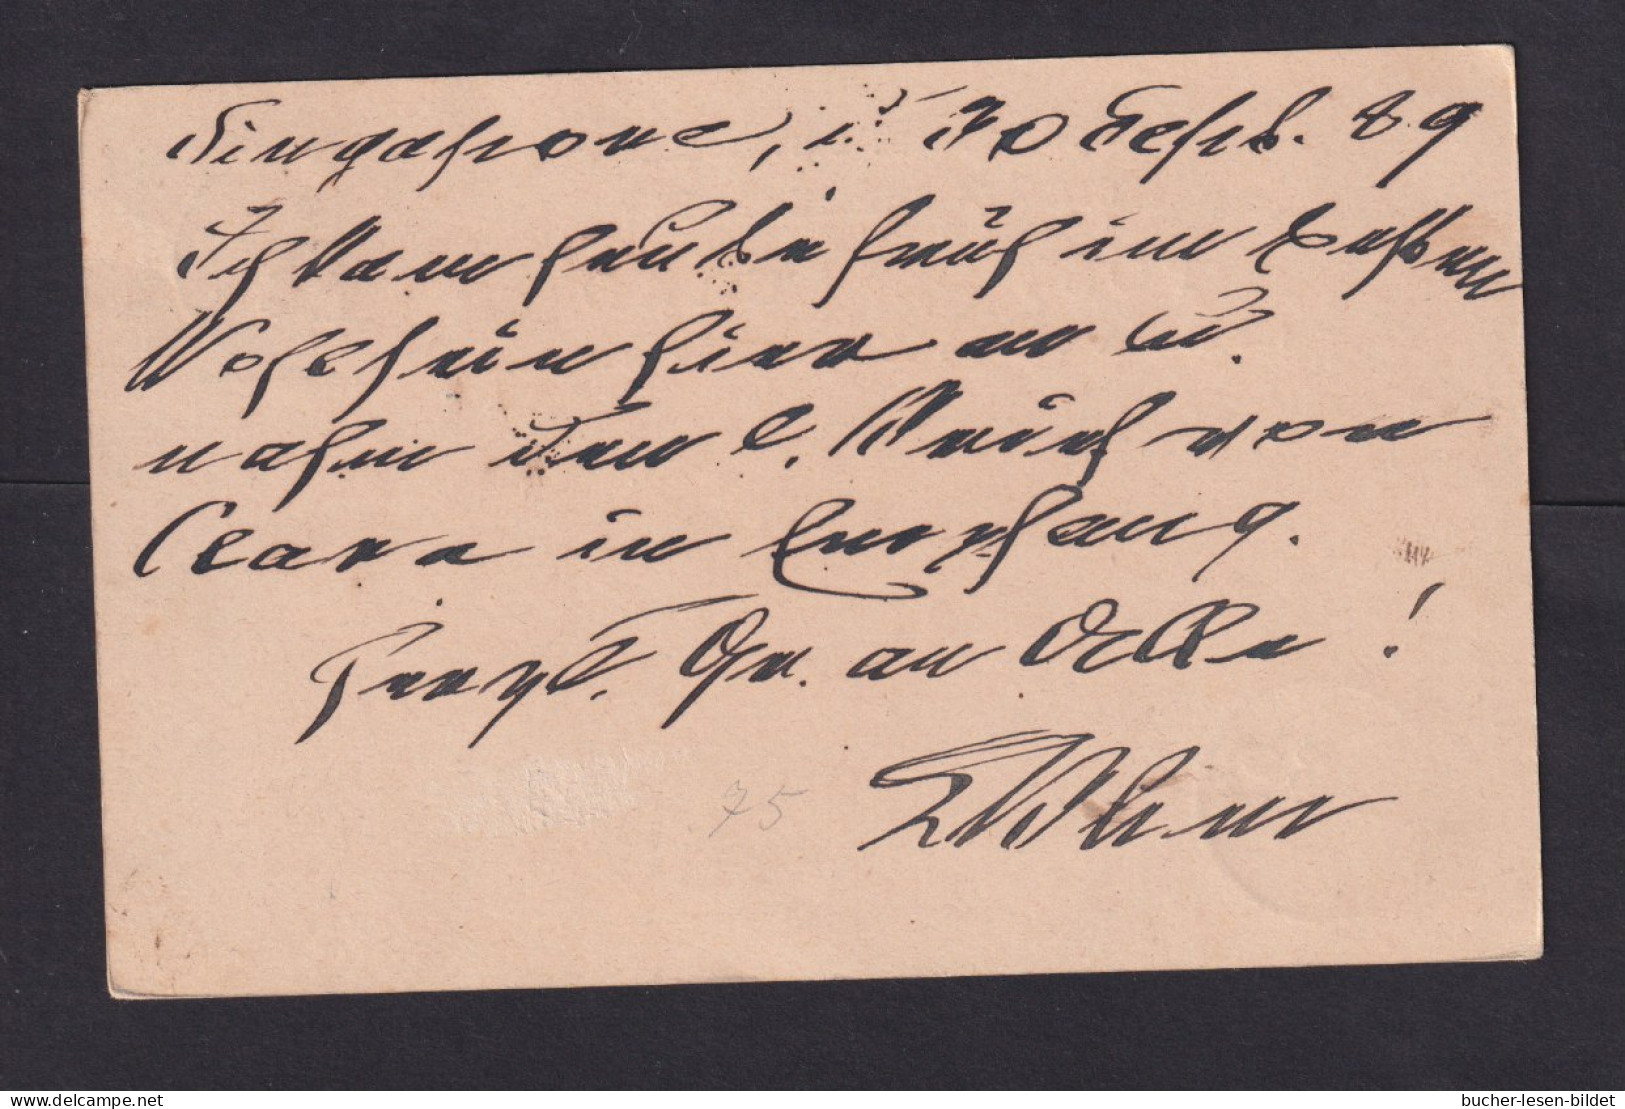 Singapore, d. 30 Sept. 89
Ich kam heute früh im besten
Wohlsein hier an u.
nahm den l. Brief von
Clara in Empfang.
Herzl. Gr. an Alle!
75
bucher-lesen-bildet